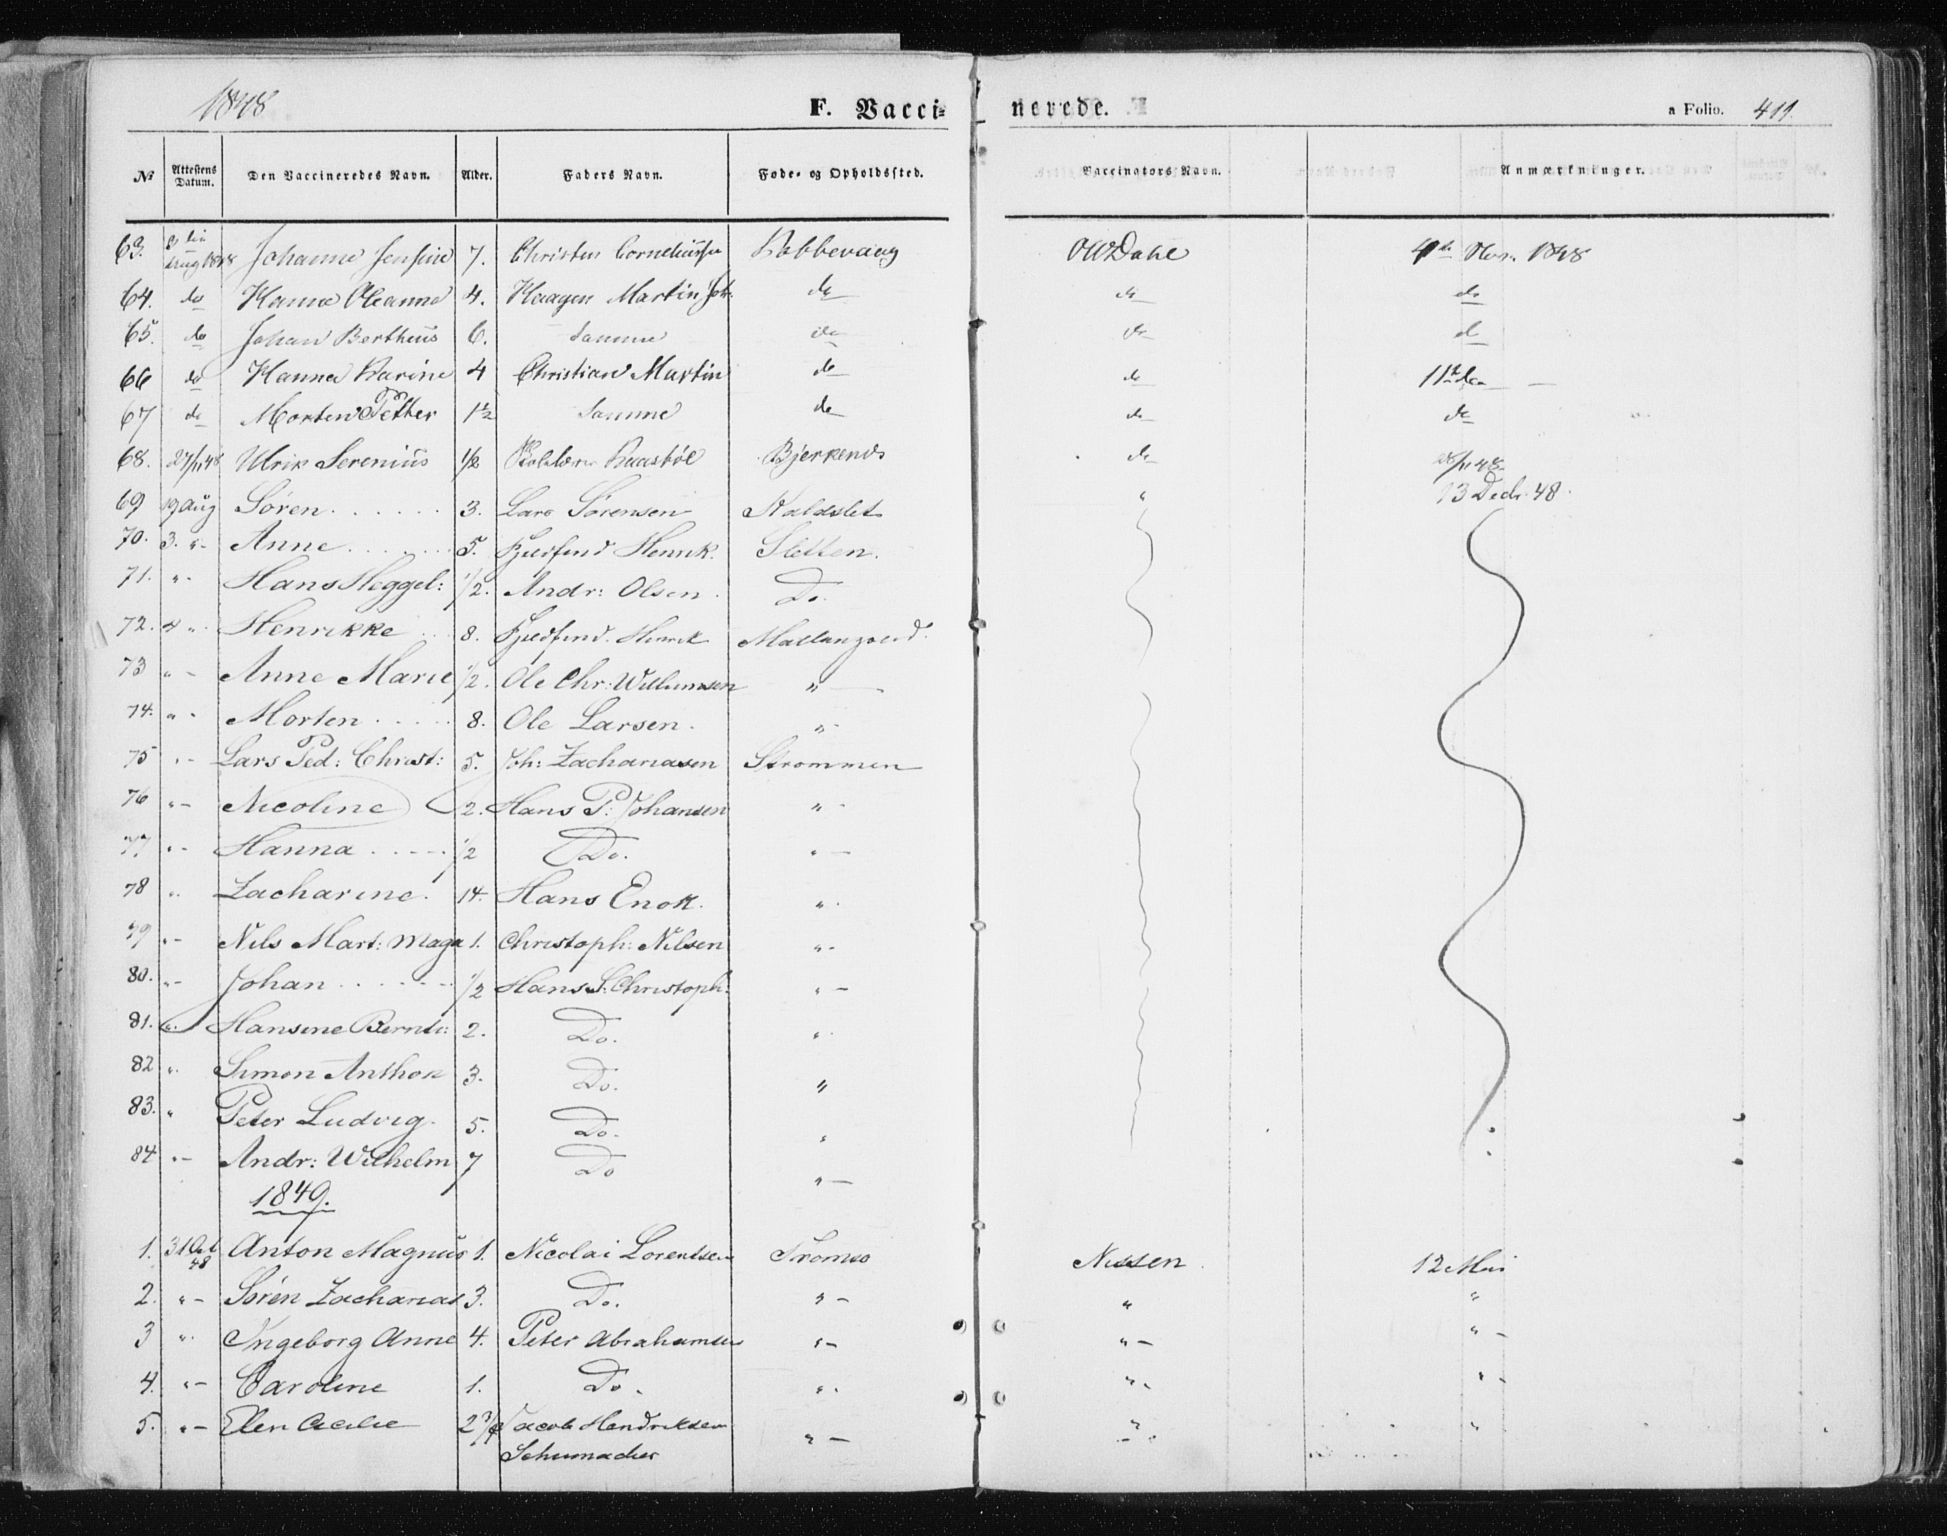 1848
F. Vaccinerede. a Folio. 411
№ Attestens Datum. Den Vaccineredes Navn. Alder. Faders Navn. Føde- og Opholdssted. Vaccinators Navn. Anmærkninger.
63. Aug 1848 Johanne Jensine 7. Christen Corneliussen Dahl 4de 1848
64. do Hanna Oleanna 4. Haagen Martin Joh. do do do
65. do Johan Bertheus 6. Samme do do do
66 do Hanna Karine 4 Christian Martin do do 11te
67 do Morten Petter 1½ Samme do do do
68. 27/11 48 Ulrik Serenius ½ Bjerkenes do 28/11 48
69 19 Aug Søren 3. Lars Sørensen Kaldslet " 13 Decb. 48.
70. 3. " - Anne 5. Fjeldfind Henrik. Sletten.
71. " - Hans Heggel: ½. Andr: Olsen. Do.
72. 4 " Henrikke 8. Fjeldfind. Henrik
73 " - Anne Marie ½. Ole Chr: Willumsen "
74. " - Morten 8. Ole Larsen. "
75 " - Lars Ped: Christ: 5. Joh: Zachariasen Strømmen
76 " - Nicoline 2. Hans P: Johansen " -
77 " - Hanna ½ Do. " -
78 " Zacharine. 14. Hans Enok. " -
79 " - Nils Mart: Magn 1. Christoph: Nilsen " -
80. " - Johan ½ Hans S. Christoph: " -
81. " Hansine Bernt: 2. Do. "
82 " Simon Anthon 3. Do. "
83. " Peter Ludvig. 5. Do. "
84 " - Andr: Wilhelm 7 Do " -
1849.
1. 31 Oct 48 Anton Magnus 1. Nicolai Lorentsen Tromsø Nissen. 12 Mai
2. " - Søren Zacharias 3. Do. " - " "
3 " Ingeborg Anne 4. Peter Abrahamsen " - " - " -
4. " - Caroline 1. Do. " " - " -
5. " - Elen Cecilie 2 3/4 Jacob Hendriksen " - " "
Schumacher